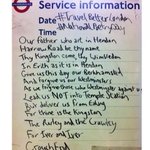 Service information
Date
#TravelBetterLondon
#NationalPoetryDay
Our father who art in Hendon
Harrow Road be thy name
Thy Kingston come, thy Wimbledon
In Erith as it is in Hendon
Give us this day our Berkhamsted
And forgive us our Westminsters
As we forgive those who Westminster against us
Lead us not into Temple Station
But deliver us from Ealing
For thine is the Kingston
The Purley and the Crawley
For Iver and Iver
Crouch End